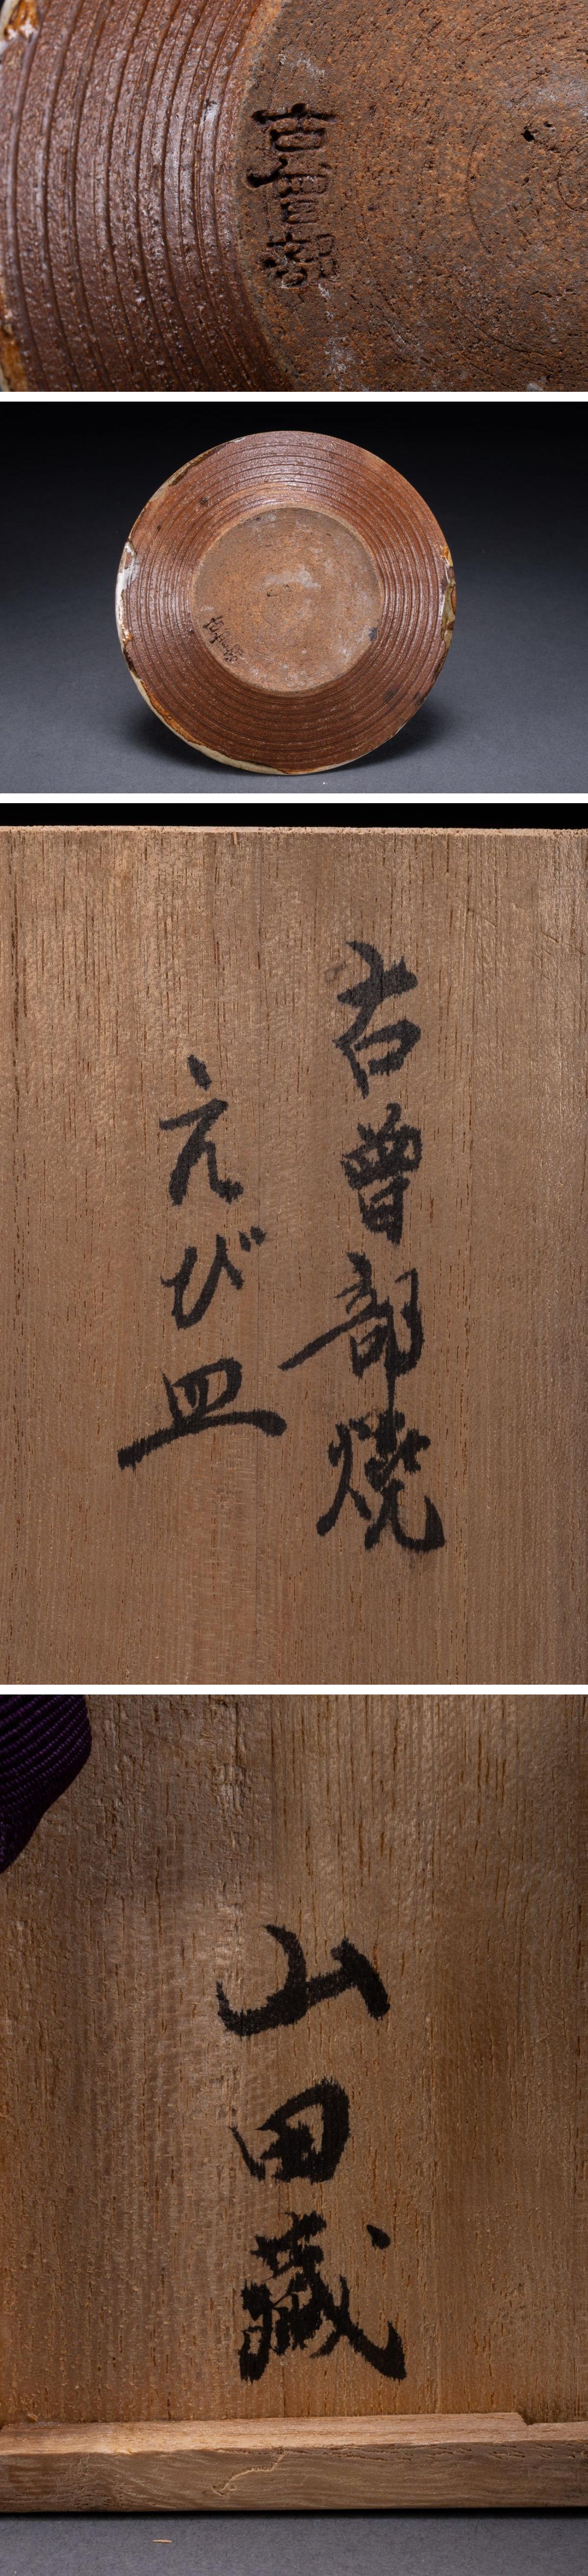 古曽部
古曽部焼
えび皿
山田蔵